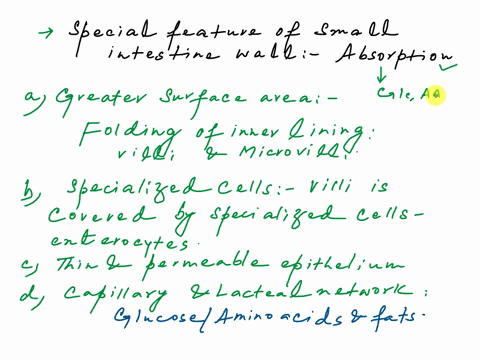 → Special feature of Small
intestine wall:- Absorption ✓
↓
Glc, AA
a) Greater surface area:-
Folding of inner lining:
villi & Microvilli.
b) Specialized cells:- villi is
covered by specialized cells-
enterocytes.
c) Thin & permeable epithelium
d) Capillary & Lacteal network:
Glucose/Amino acids & fats.